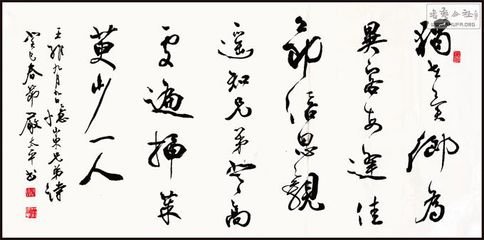 獨在異鄉為
異客每逢佳
節倍思親
遥知兄弟登高
處遍插茱
萸少一人
王維九月九日憶山東兄弟詩
癸巳春節嚴文平书